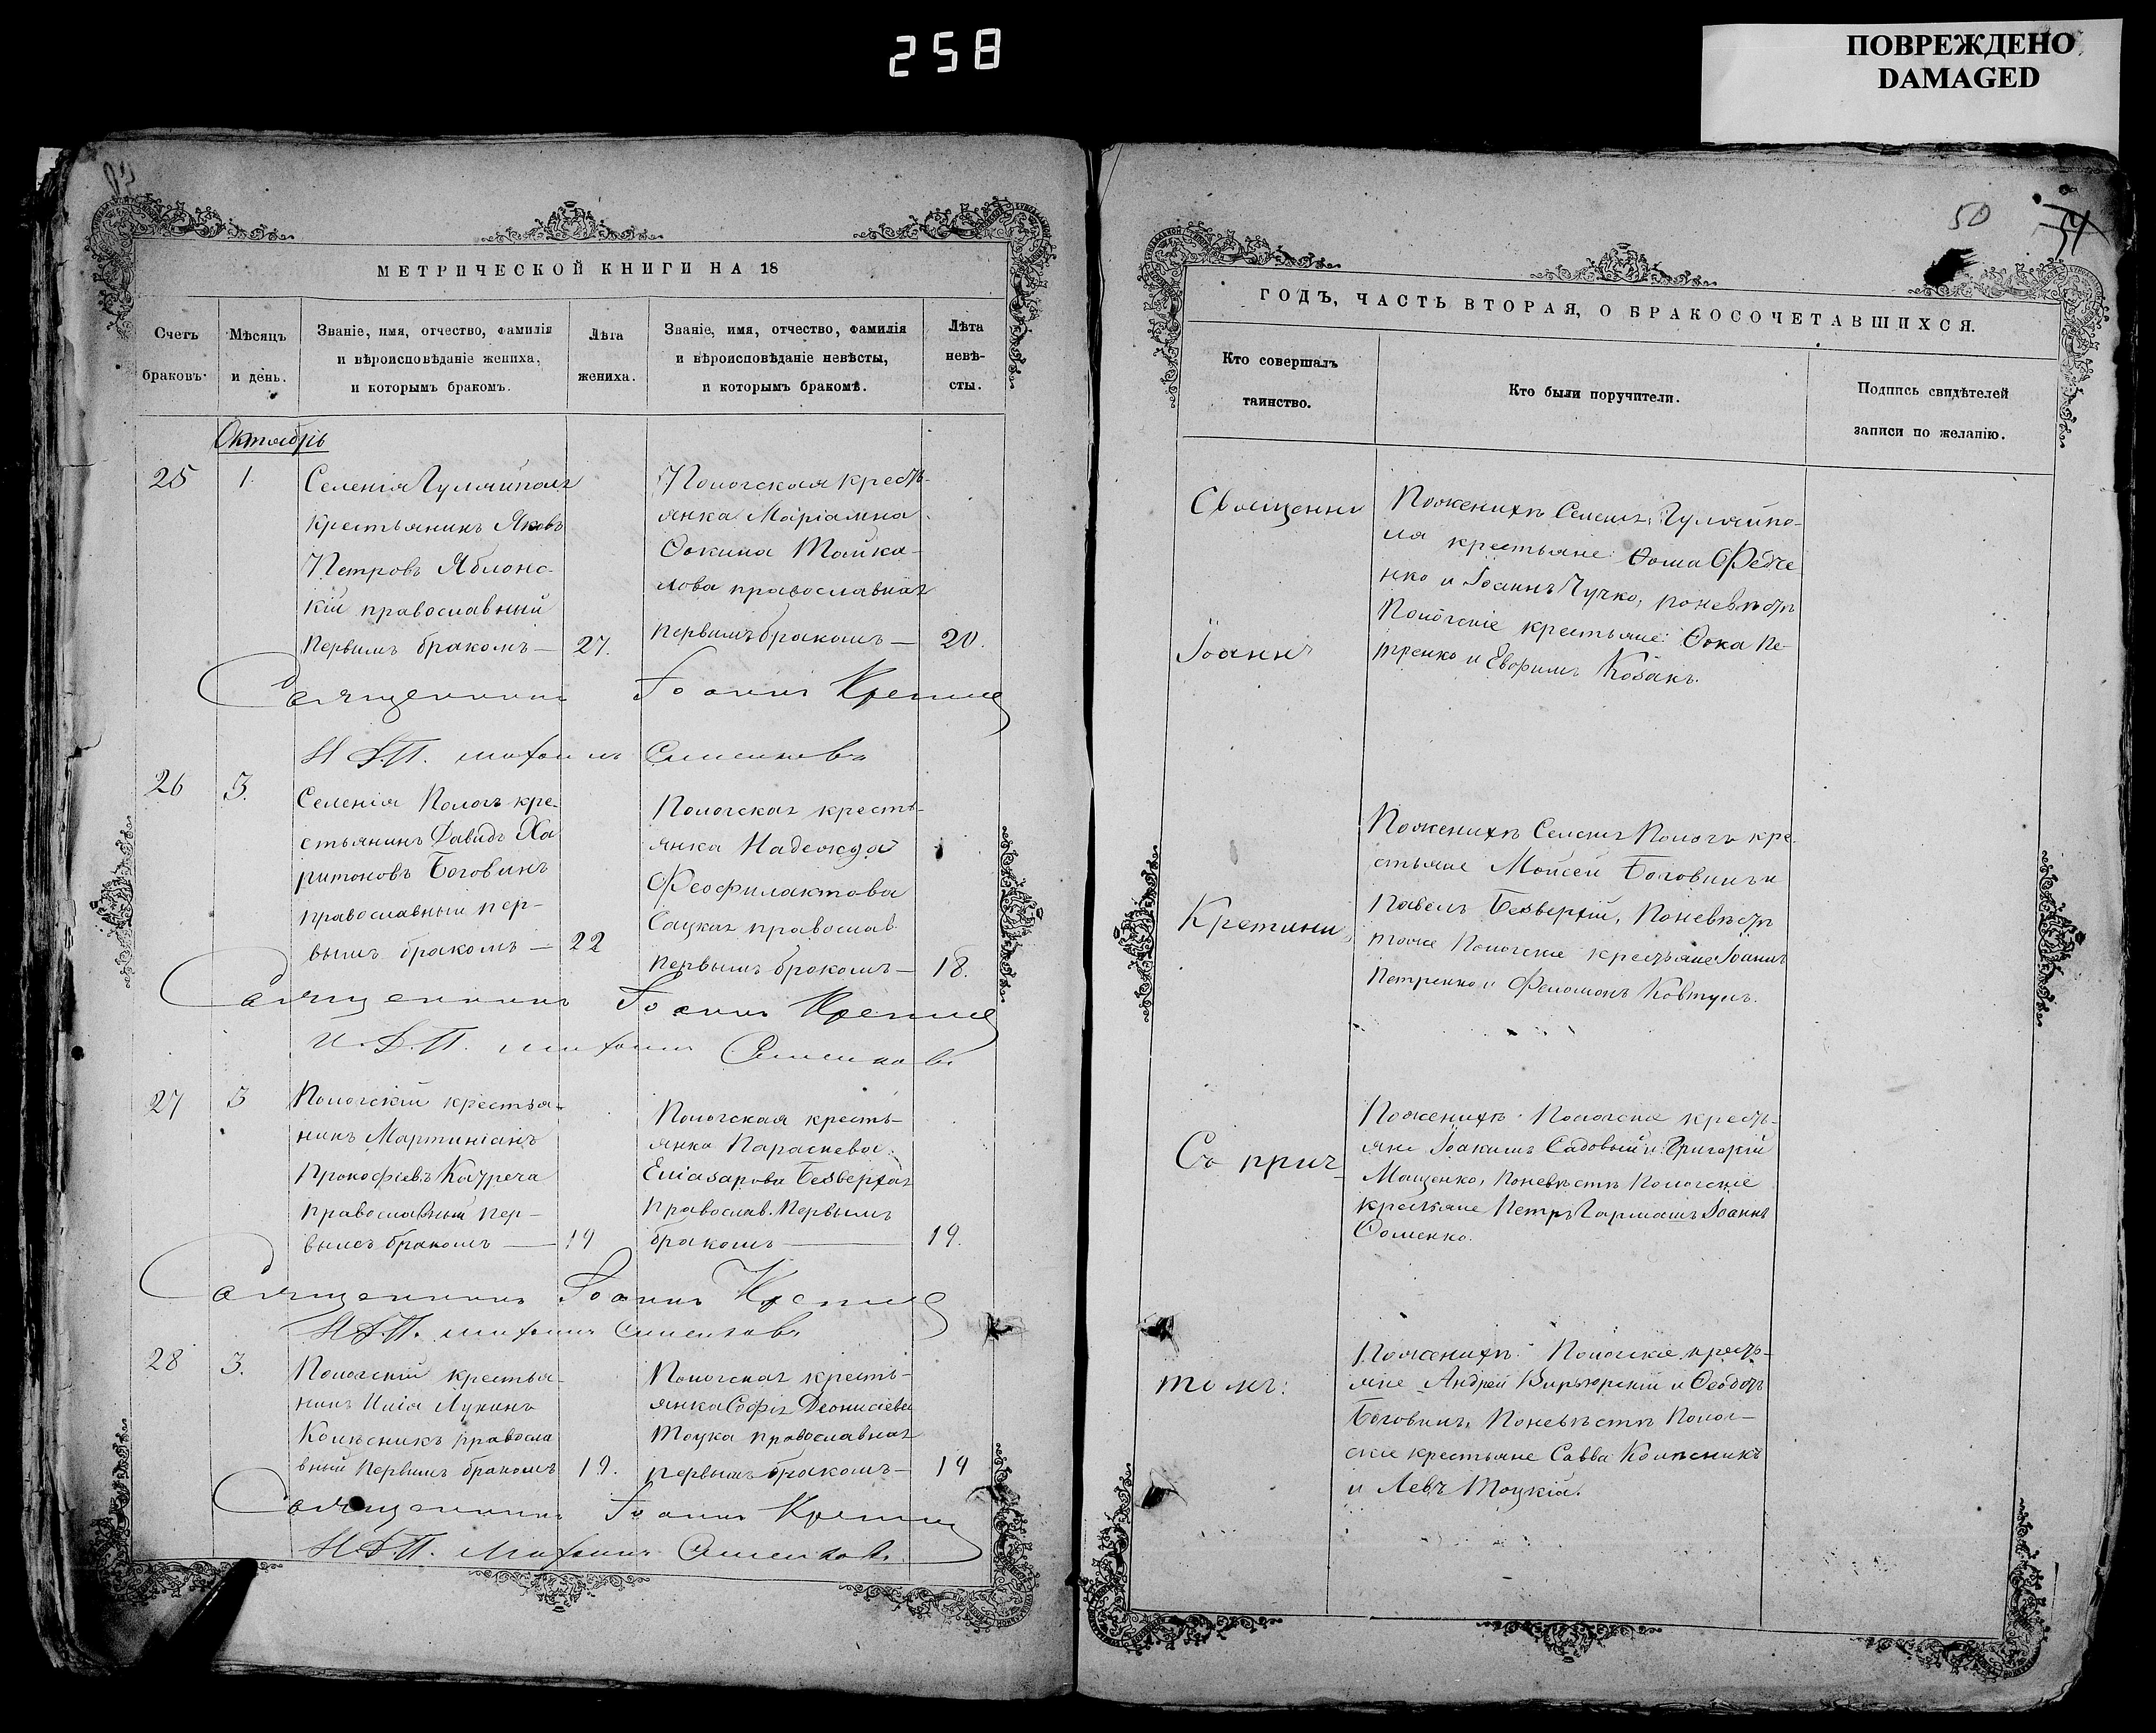 258
ПОВРЕЖДЕНО
DAMAGED
МЕТРИЧЕСКОЙ КНИГИ НА 18
Счетъ браковъ.
Мѣсяцъ и день.
Званіе, имя, отчество, фамилія
и вѣроисповѣданіе жениха,
и которымъ бракомъ.
Лѣта жениха.
Званіе, имя, отчество, фамилія
и вѣроисповѣданіе невѣсты,
и которымъ бракомъ.
Лѣта невѣ-
сты.
Октябрь
25
1.
Селенія Гуляйполя
крестьянинъ Яковъ
Петровъ Яблонс-
кій православный
первымъ бракомъ —
27.
Пологская кресть-
янка Маріамна
Ѳокина Тайка-
лова православная
первымъ бракомъ —
20.
Священникъ Іоаннъ
И.Д.П.
26
3.
Селенія Пологъ кре-
стьянинъ Давидъ Ха
ритоновъ Боговинъ
православный пер-
вымъ бракомъ —
22
Пологская кресть-
янка Надежда
Феофилактова
Сацкая православ.
первымъ бракомъ —
18.
Священникъ Іоаннъ
И.Д.П.
27
3
Пологскій крестья-
нинъ Мартиніанъ
Прокофіевъ
православный пер-
вымъ бракомъ —
19
Пологская кресть-
янка Параскева
Еліазарова Безверхая
православ. первымъ
бракомъ —
19.
Священникъ Іоаннъ
И.Д.П.
28
3.
Пологскій крестья-
нинъ Илія Лукинъ
Колѣсникъ правосла
вный первымъ бракомъ
19.
Пологская кресть-
янка Софія Діонисіева
Тоцка православная
первымъ бракомъ —
19
Священникъ Іоаннъ
И.Д.П.
50
54
ГОДЪ, ЧАСТЬ ВТОРАЯ, О БРАКОСОЧЕТАВШИХСЯ.
Кто совершалъ
таинство.
Кто были поручители.
Подпись свидѣтелей
записи по желанію.
Священни
Іоаннъ
По женихѣ Селенія Гуляйпо-
ля крестьяне: Ѳома Федче
нко и Іоаннъ Чучко, по невѣстѣ
Пологскіе крестьяне: Ѳока Пе-
тренко и Евфимъ Козакъ.
По женихѣ Селенія Пологъ кре-
стьяне Моисей Боговинъ и
Павелъ Безверхій, По невѣстѣ
тоже Пологскіе крестьяне Іоаннъ
Петренко и Филимонъ Ковтунъ.
Съ прич
По женихѣ Пологскіе кресть-
яне Іоакимъ Садовый и Григорій
Мащенко, По невѣстѣ Пологскіе
крестьяне Петръ Гармашъ Іоаннъ
Ѳоменко.
томъ:
По женихѣ: Пологскіе кресть-
яне Андрей и Ѳеодотъ
Боговинъ, По невѣстѣ Полог-
скіе крестьяне Савва Колѣсникъ
и Левъ Тоцкій.